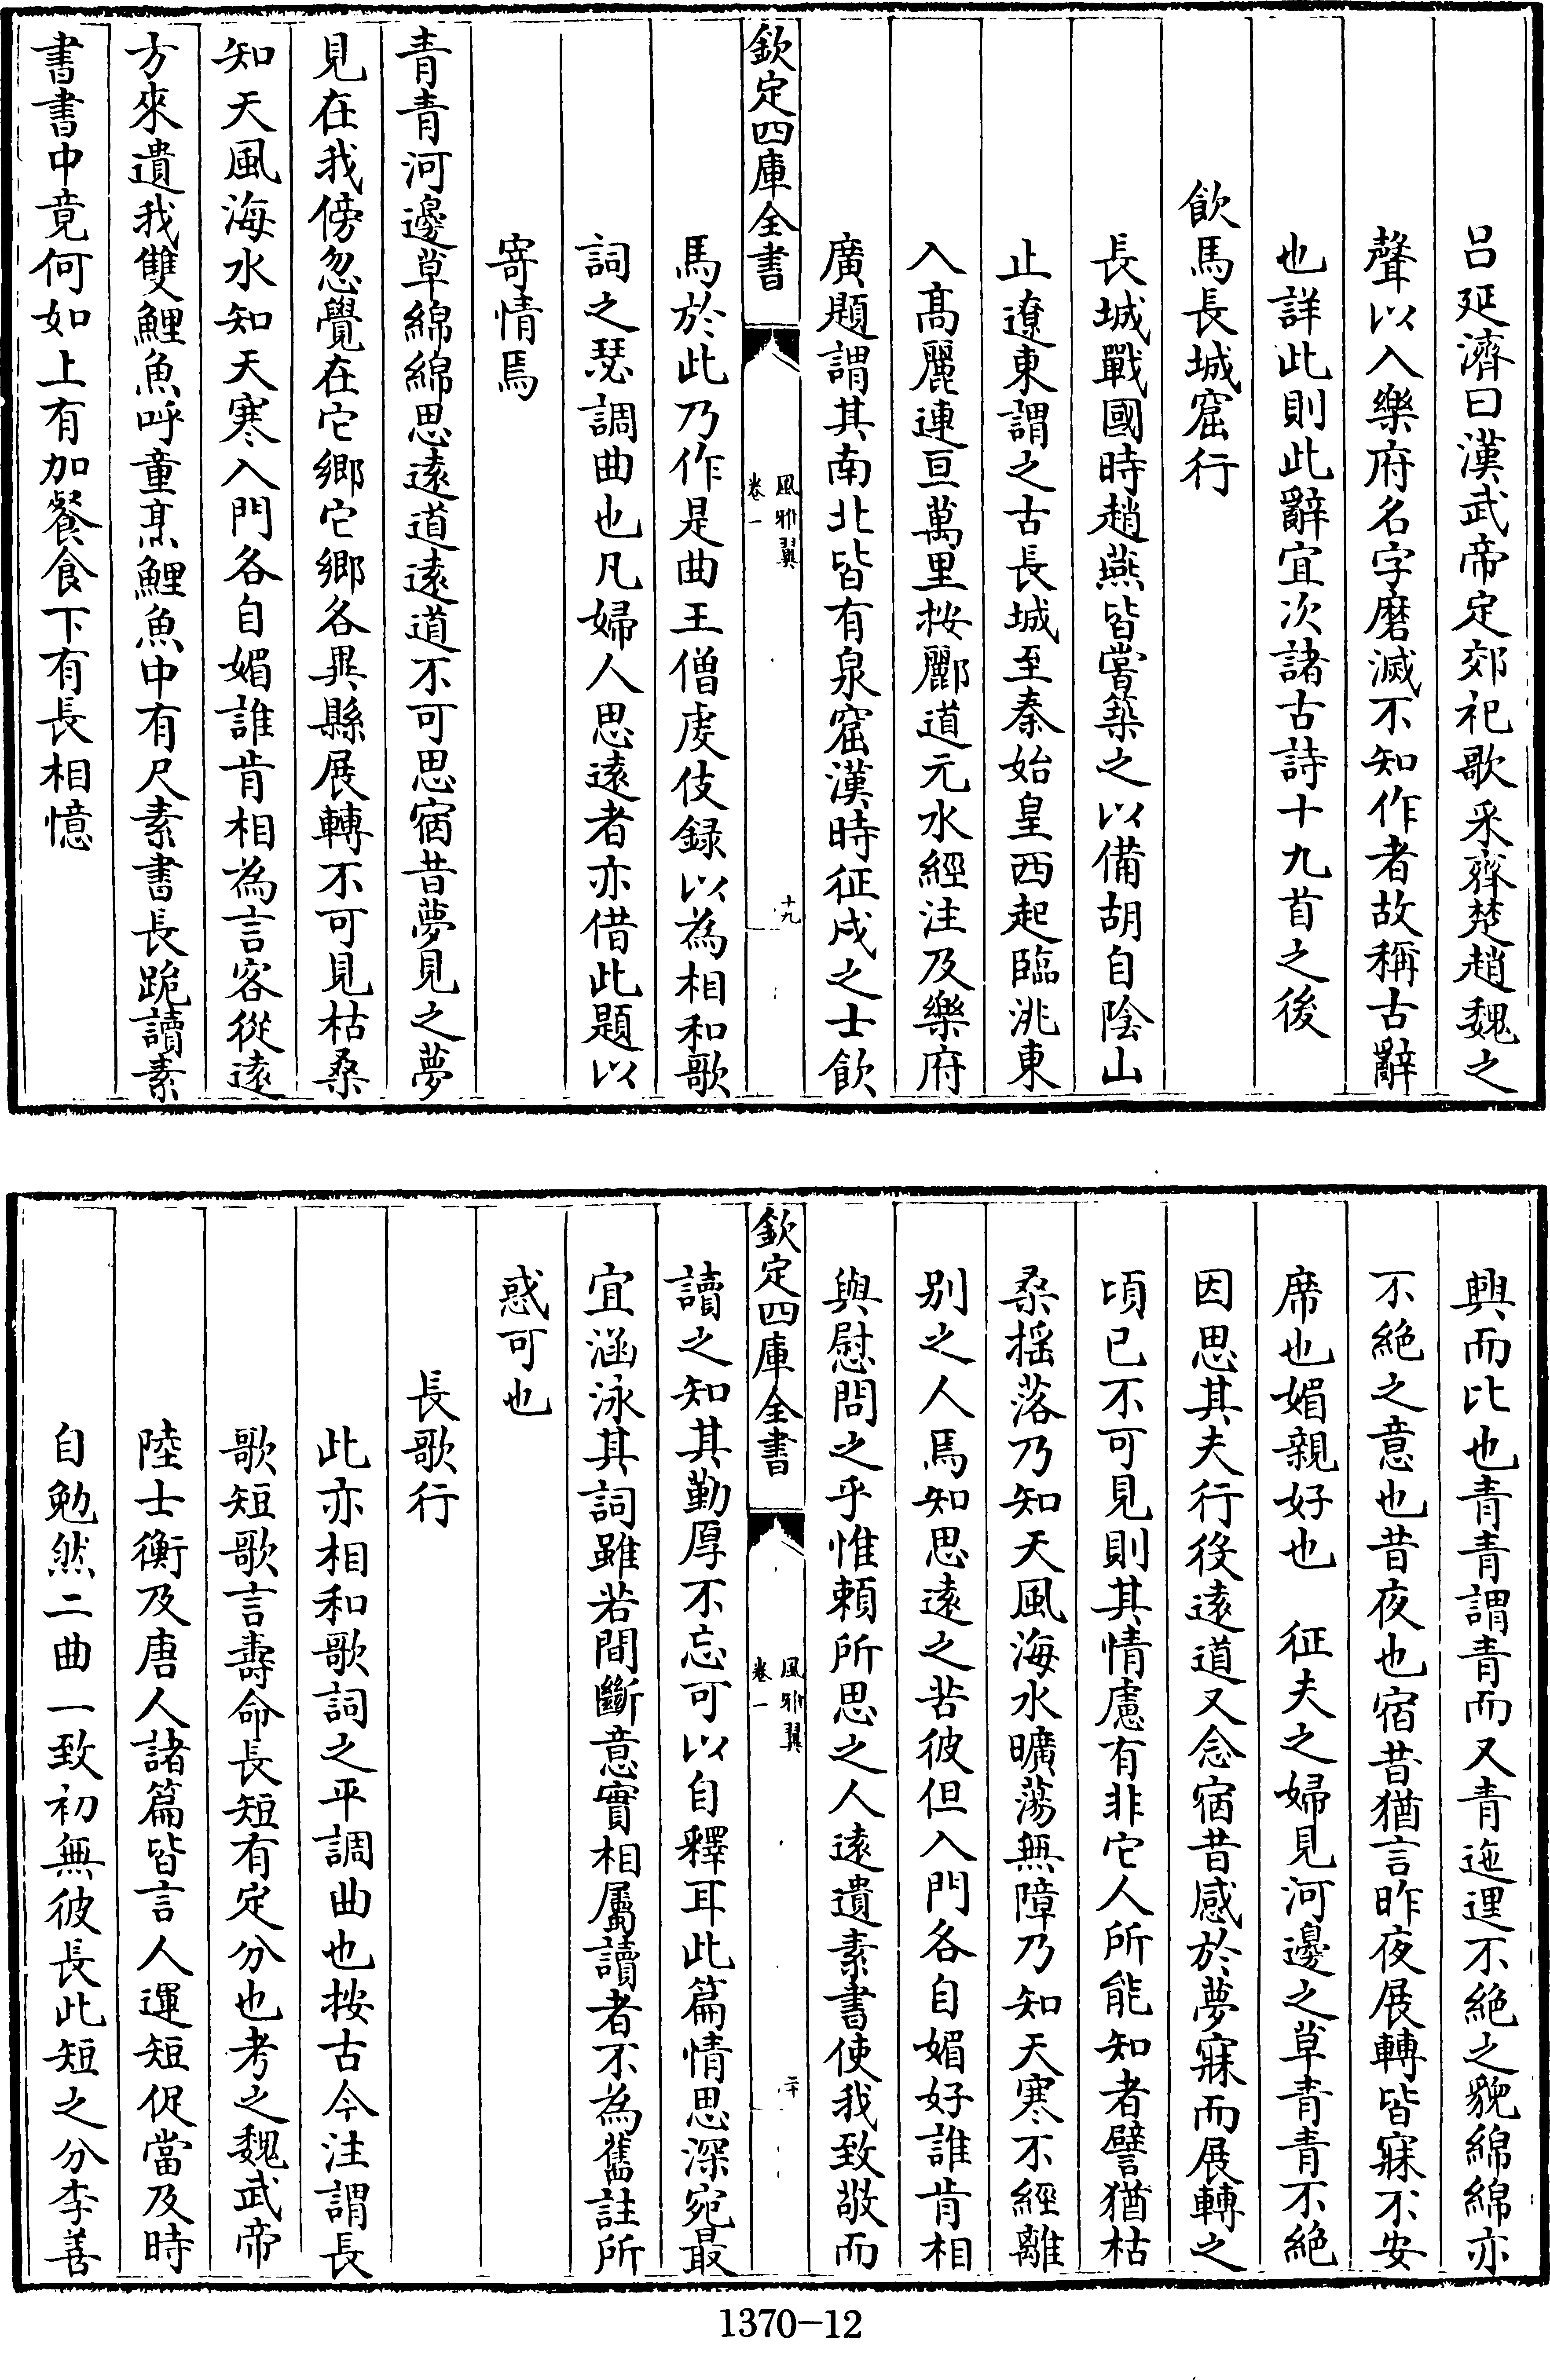 呂延濟曰漢武帝定郊祀歌采齊楚趙魏之
聲以入樂府名字磨滅不知作者故稱古辭
也詳此則此辭宜次諸古詩十九首之後
飲馬長城窟行
長城戰國時趙燕皆嘗築之以備胡自陰山
止遼東謂之古長城至秦始皇西起臨洮東
入髙麗連亘萬里按酈道元水經注及樂府
廣題謂其南北皆有泉窟漢時征戍之士飲
欽定四庫全書
風雅翼
卷一
十九
馬於此乃作是曲王僧䖍伎録以為相和歌
詞之瑟調曲也凡婦人思逺者亦借此題以
寄情焉
青青河邊草綿綿思逺道逺道不可思宿昔夢見之夢
見在我傍忽覺在它鄉它鄉各異縣展轉不可見枯桑
知天風海水知天寒入門各自媚誰肯相為言客從逺
方來遺我雙鯉魚呼童烹鯉魚中有尺素書長跪讀素
書書中竟何如上有加餐食下有長相憶
興而比也青青謂青而又青迤逦不絶之貌綿綿亦
不絶之意也昔夜也宿昔猶言昨夜展轉皆寐不安
席也媚親好也 征夫之婦見河邊之草青青不絶
因思其夫行役逺道又念宿昔感於夢寐而展轉之
頃已不可見則其情慮有非它人所能知者譬猶枯
桑揺落乃知天風海水曠蕩無障乃知天寒不經離
别之人焉知思逺之苦彼但入門各自媚好誰肯相
與慰問之乎惟頼所思之人逺遺素書使我致敬而
欽定四庫全書
風雅翼
卷一
二十
讀之知其勤厚不忘可以自釋耳此篇情思深宛最
宜涵泳其詞雖若間斷意實相屬讀者不為舊註所
惑可也
長歌行
此亦相和歌詞之平調曲也按古今注謂長
歌短歌言壽命長短有定分也考之魏武帝
陸士衡及唐人諸篇皆言人運短促當及時
自勉然二曲一致初無彼長此短之分李善
1370-12